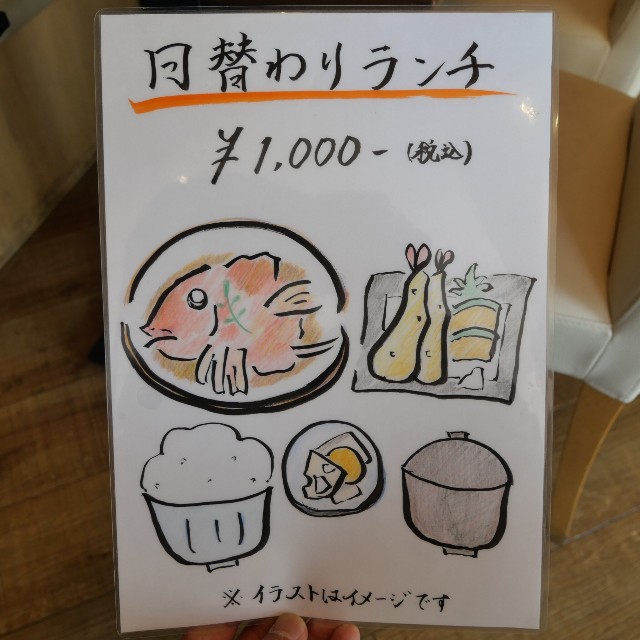 日替わりランチ
¥1,000- (税込)
※ イラストはイメージです